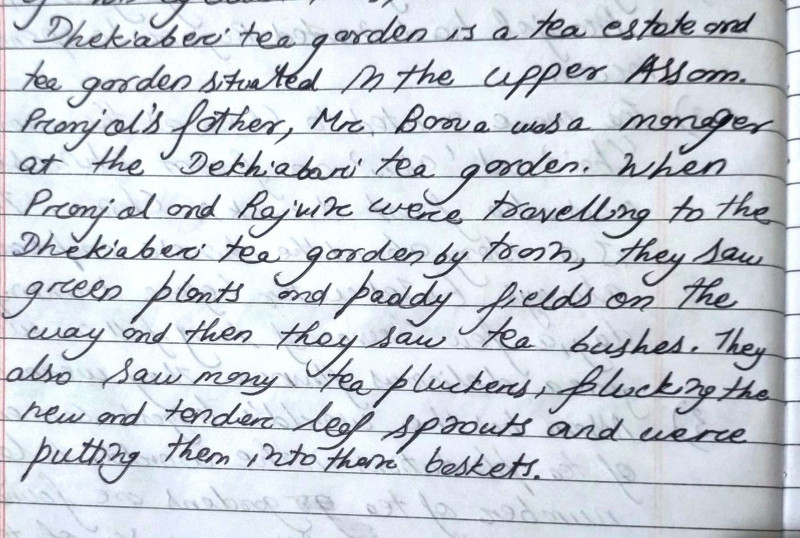 Dhekiaberi tea garden is a tea estate and
tea garden situated in the upper Assam.
Pranjal's father, Mr. Borua was a manager
at the Dekhiabari tea garden. When
Pranjal and Rajvir were travelling to the
Dhekiaberi tea garden by train, they saw
green plants and paddy fields on the
way and then they saw tea bushes. They
also saw many tea pluckers, plucking the
new and tender leaf sprouts and were
putting them into their beskets.